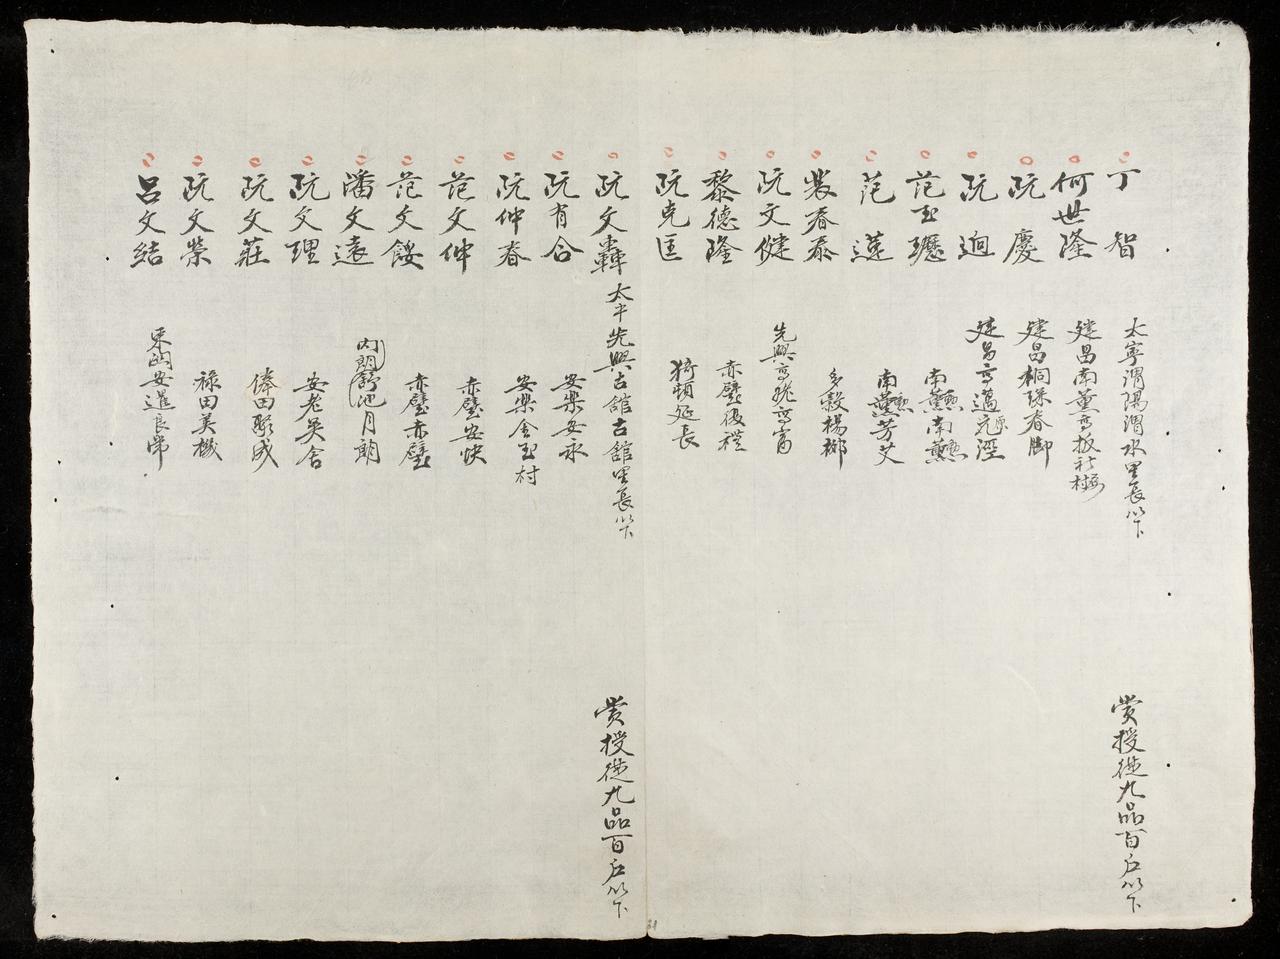 丁智 太寧渭陽渭水里長以下 賞授從九品百户以下
何世隆 建昌南薰 社 村
阮慶 建昌桐珠春脚
阮迥 建昌 邁
范玉瓑 南薰南薰
范蓮 南薰芳艾
裴春泰 多穀楊柳
阮文健 先興
黎德隆 赤壁復禮
阮克匡 猗頓延長
阮文轟 太平先興古舘古舘里長以下 賞授從九品百户以下
阮有合 安樂安永
阮仲春 安樂舍玉村
范文仲 赤壁安快
范文餒 赤壁赤壁
潘文遠 内朗舒池月朗
阮文理 安老吳舍
阮文莊 俸田聚成
阮文榮 禄田美機
呂文結 東 安進良常